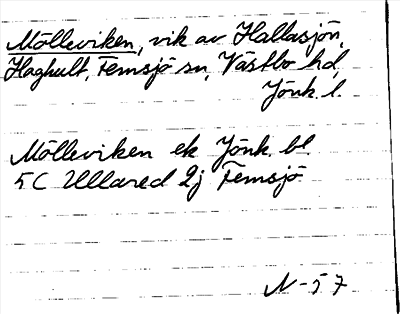 Mölleviken, vik av Hallasjön,
Haghult, Femsjö sn, Västbo hd,
Jönk. l.
Mölleviken ek Jönk. bl.
5C Ullared 2j Femsjö
N-57